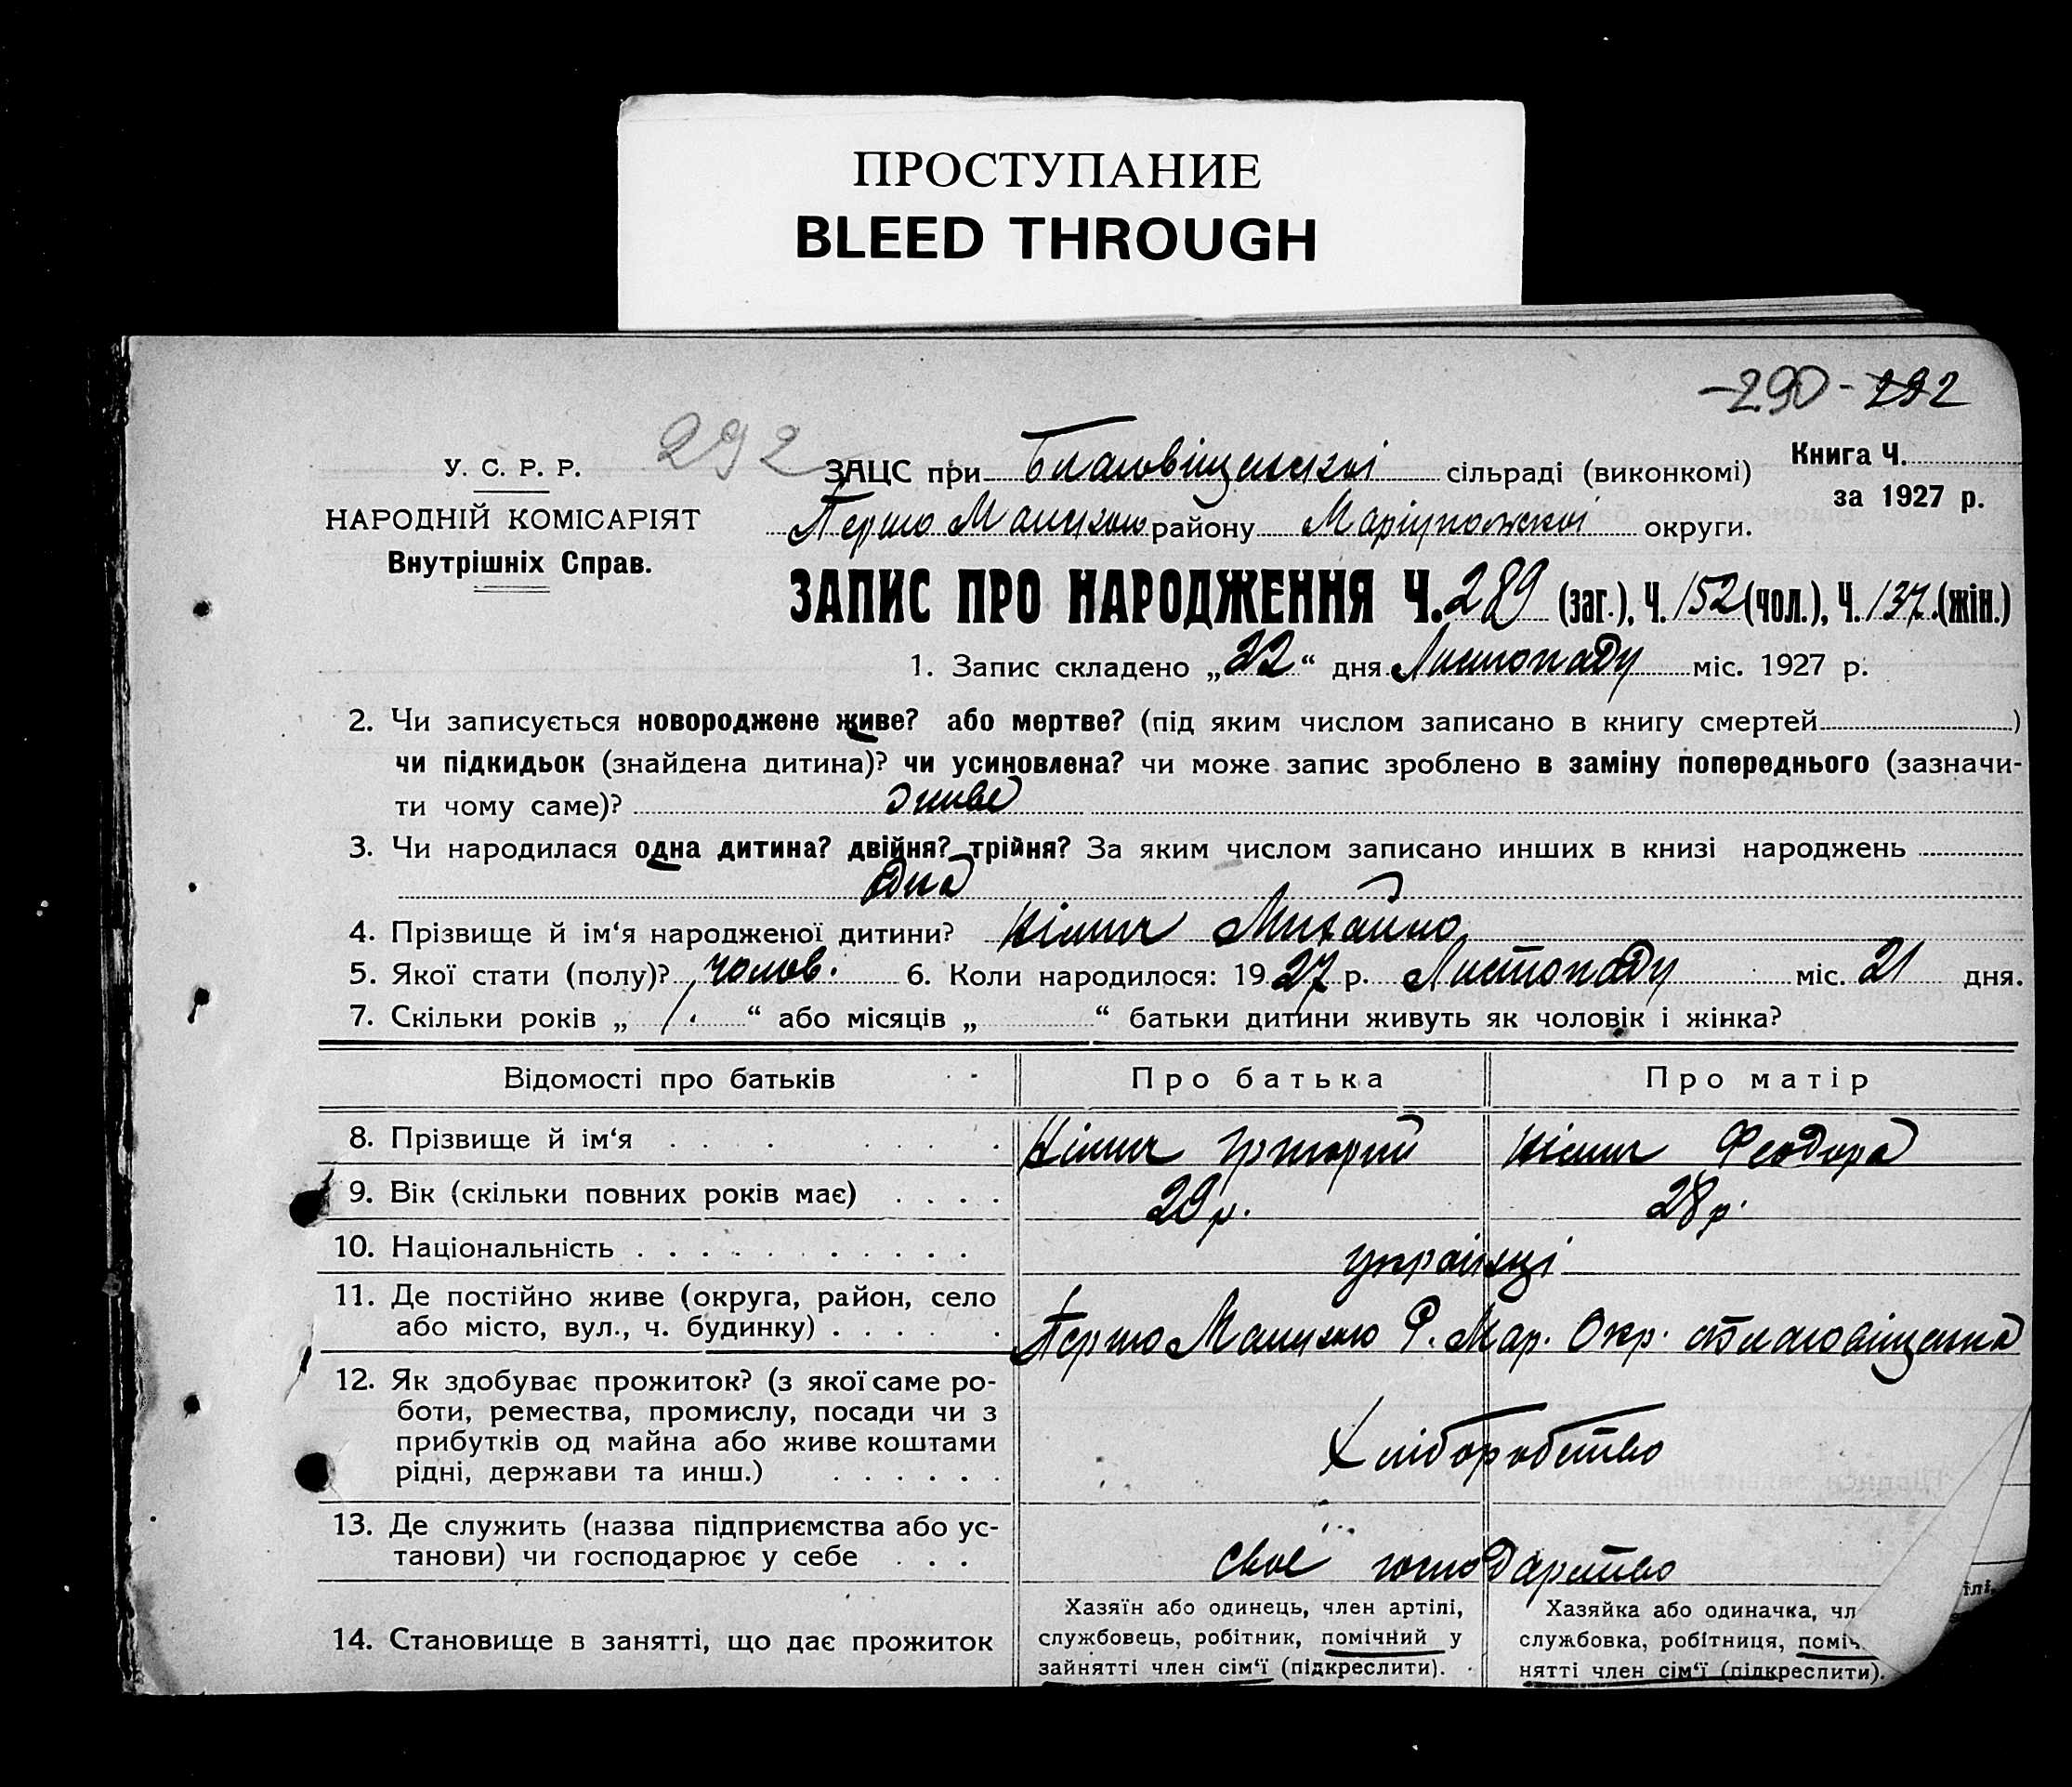 ПРОСТУПАНИЕ
BLEED THROUGH
-290-292
292
У. С. Р. Р.
НАРОДНІЙ КОМІСАРІЯТ
Внутрішніх Справ.
ЗАЦС при Благовіщенскої сільраді (виконкомі)
Книга Ч.
за 1927 р.
Першо району Маріупольскої округи.
ЗАПИС ПРО НАРОДЖЕННЯ Ч. 289 (заг.), Ч. 152 (чол.), Ч. 137. (жін.)
1. Запис складено „22“ дня Листопаду міс. 1927 р.
2. Чи записується новороджене живе? або мертве? (під яким числом записано в книгу смертей)
чи підкидьок (знайдена дитина)? чи усиновлена? чи може запис зроблено в заміну попереднього (зазначи-
ти чому саме)? живе
3. Чи народилася одна дитина? двійня? трійня? За яким числом записано инших в книзі народжень
одна
4. Прізвище й ім‘я народженої дитини? Михайло
5. Якої стати (полу)? чолов. 6. Коли народилося: 1927 р. Листопаду міс. 21 дня.
7. Скільки років „ 1. “ або місяців „ “ батьки дитини живуть як чоловік і жінка?
Відомості про батьків Про батька Про матір
8. Прізвище й ім‘я . . . . . . Григорий Феодора
9. Вік (скільки повних років має) . . . . 29 р. 28 р.
10. Національність . . . . . . . . . . . українці
11. Де постійно живе (округа, район, село
або місто, вул., ч. будинку) . . . . . . Першо Р. Мар. Окр. Благовіщенка
12. Як здобуває прожиток? (з якої саме ро-
боти, ремества, промислу, посади чи з
прибутків од майна або живе коштами
рідні, держави та инш.) . . . . . . Хліборобство
13. Де служить (назва підприємства або ус-
танови) чи господарює у себе . . . своє господарство
14. Становище в занятті, що дає прожиток
Хазяїн або одинець, член артілі,
службовець, робітник, помічний у
зайнятті член сім‘ї (підкреслити).
Хазяйка або одиначка, чл
службовка, робітниця, поміч
нятті член сім‘ї (підкреслити).